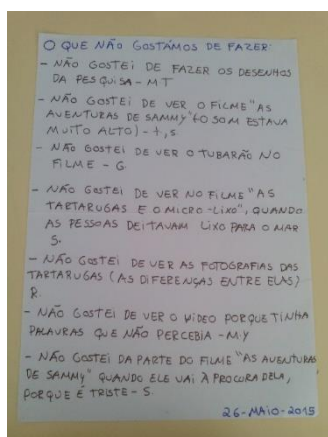 O QUE NÃO GOSTÁMOS DE FAZER:
- NÃO GOSTEI DE FAZER OS DESENHOS
DA PESQUISA - MT
- NÃO GOSTEI DE VER O FILME "AS
AVENTURAS DE SAMMY" (O SOM ESTAVA
MUITO ALTO) - S.
- NÃO GOSTEI DE VER O TUBARÃO NO
FILME - G
- NÃO GOSTEI DE VER NO FILME "AS
TARTARUGAS E O MICRO-LIXO", QUANDO
AS PESSOAS DEITAVAM LIXO PARA O MAR
S.
- NÃO GOSTEI DE VER AS FOTOGRAFIAS DAS
TARTARUGAS (AS DIFERENÇAS ENTRE ELAS)
R.
- NÃO GOSTEI DE VER O VIDEO PORQUE TINHA
PALAVRAS QUE NÃO PERCEBIA - M.Y
- NÃO GOSTEI DA PARTE DO FILME "AS AVENTURAS
DE SAMMY" QUANDO ELE VAI À PROCURA DELA,
PORQUE É TRISTE - S.
26-MAIO-2015